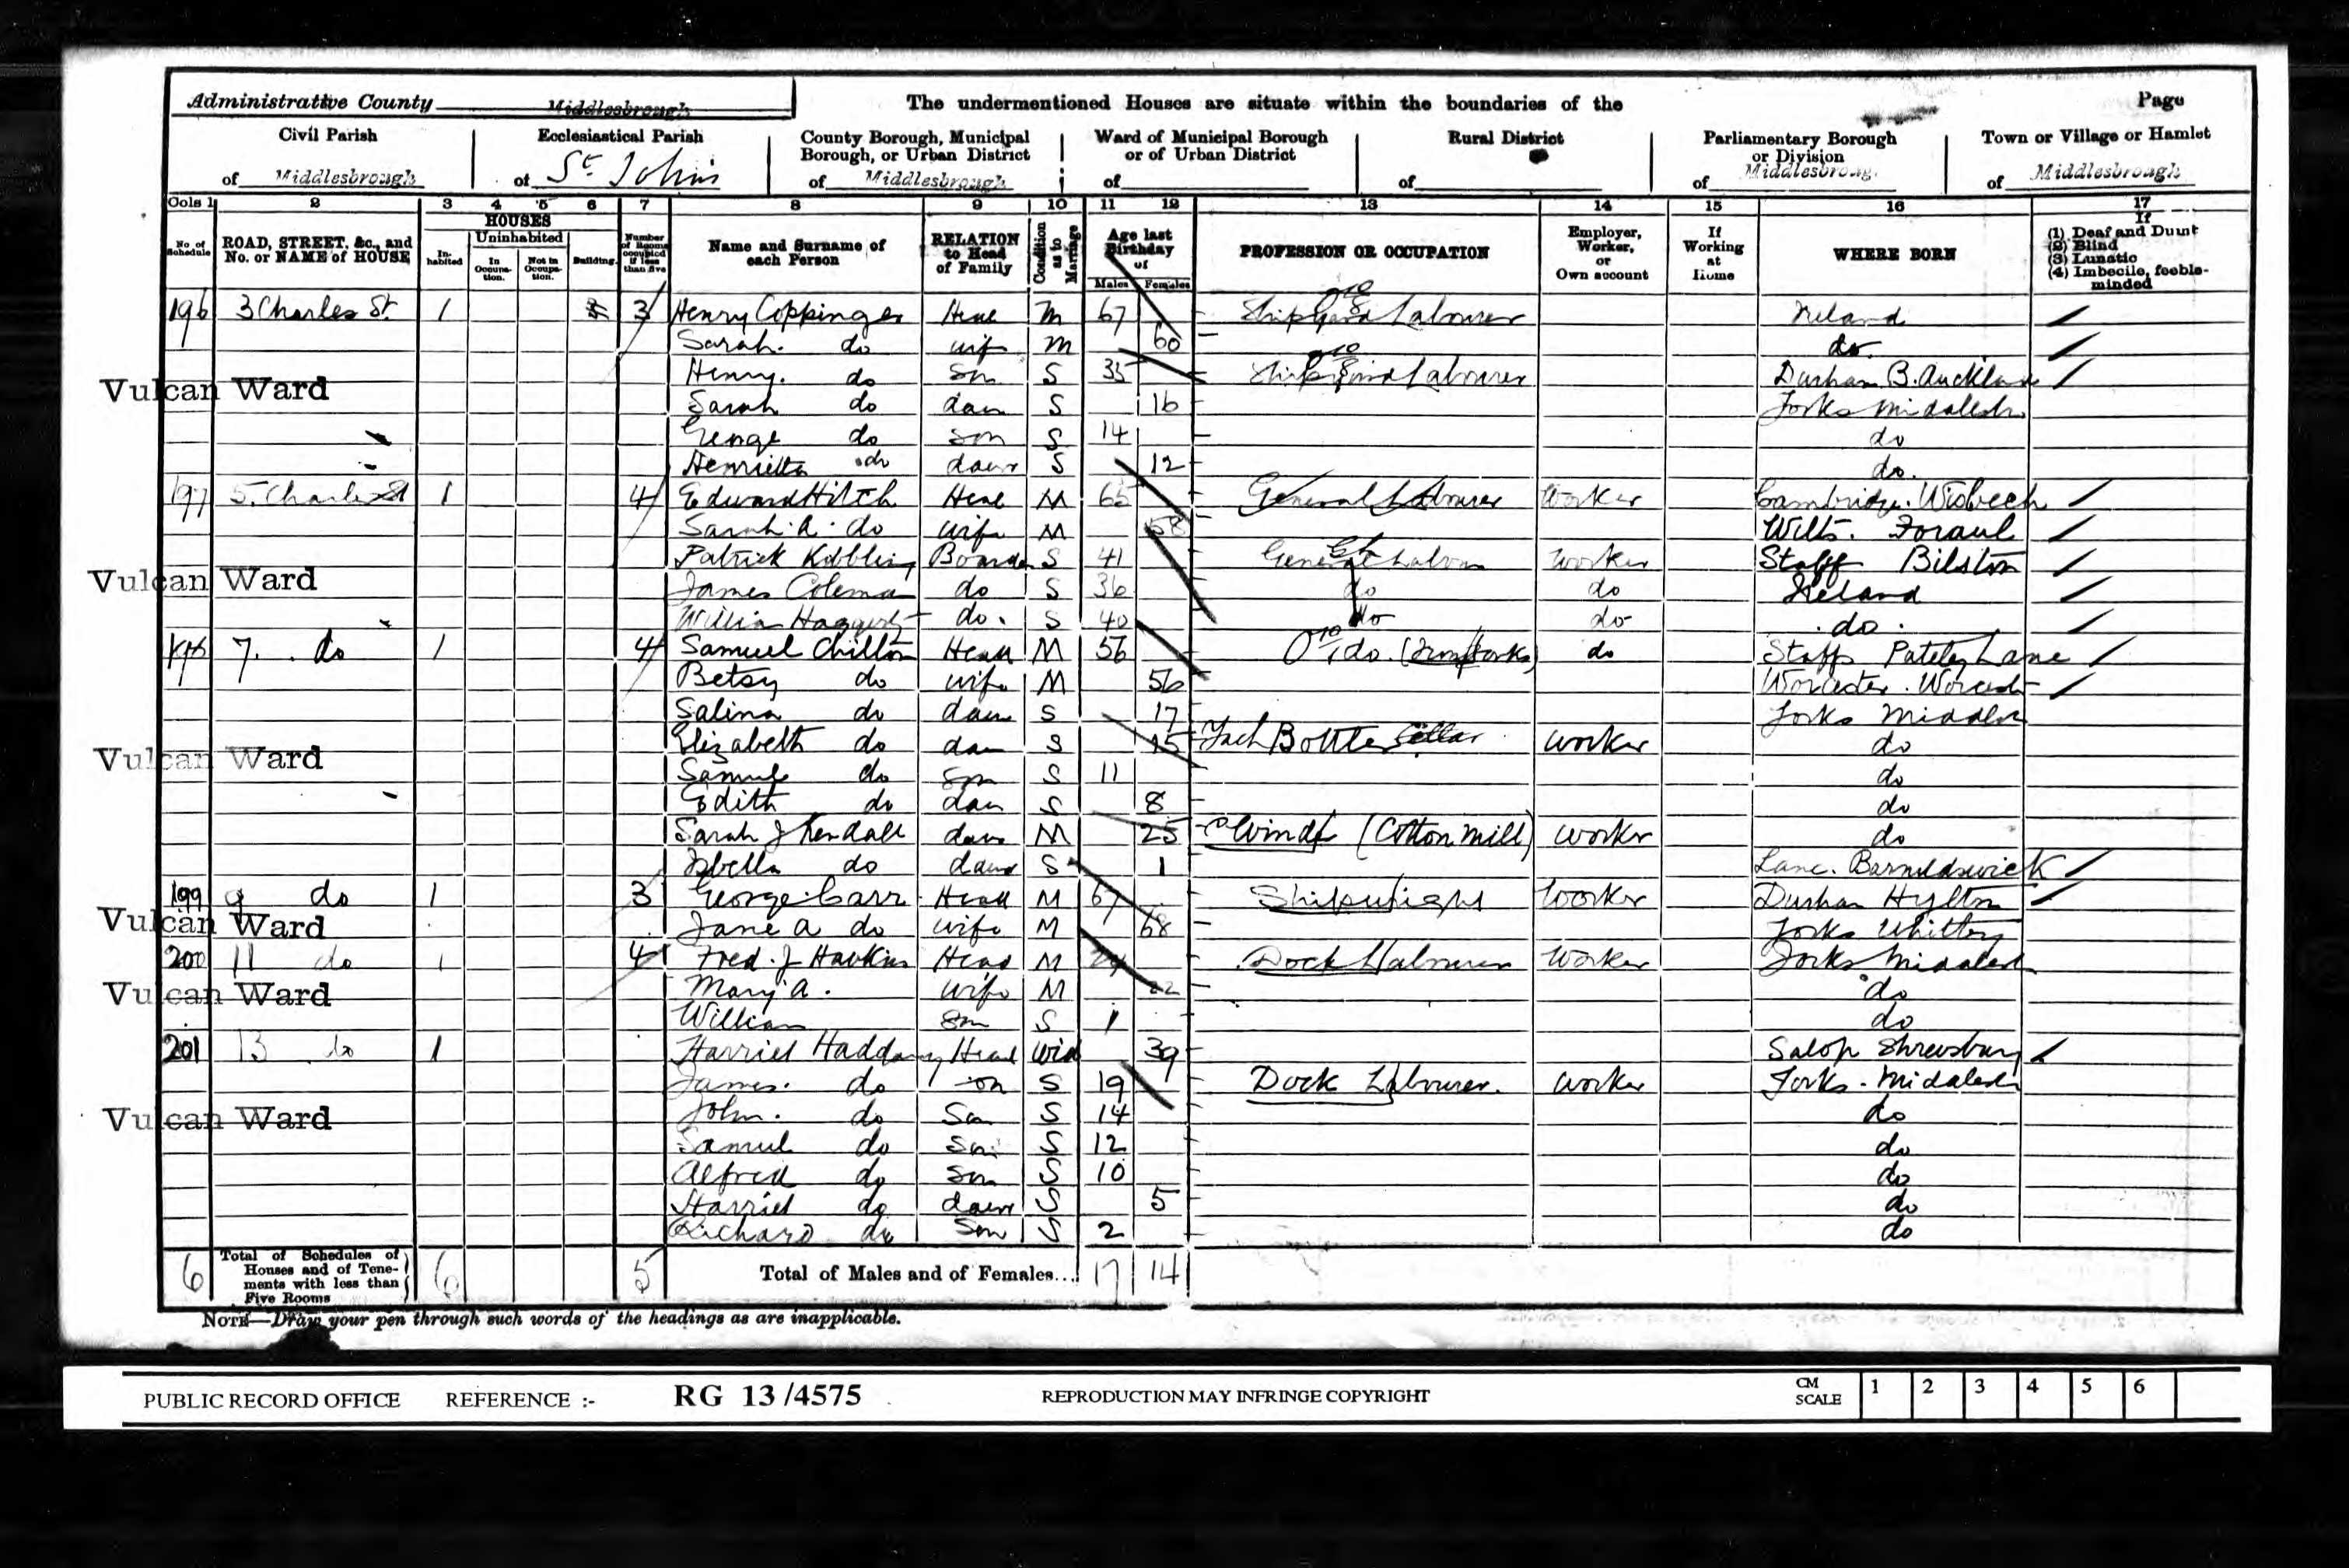 Administrative County Middlesbrough
The undermentioned Houses are situate within the boundaries of the
Page
Civil Parish of Middlesbrough
Ecclesiastical Parish of St. Johns
County Borough, Municipal Borough, or Urban District of Middlesbrough
Ward of Municipal Borough or of Urban District of
Rural District of
Parliamentary Borough or Division of Middlesbroug.
Town or Village or Hamlet of Middlesbrough
Cols 1 2 3 4 5 6 7 8 9 10 11 12 13 14 15 16 17
No. of Schedule
ROAD, STREET, &c., and No. or NAME of HOUSE
HOUSES
In-habited
Uninhabited
In Occupa-tion.
Not in Occupa-tion.
Building.
Number of Rooms occupied if less than five
Name and Surname of each Person
RELATION to Head of Family
Condition as to Marriage
Age last Birthday of
Males Females
PROFESSION OR OCCUPATION
Employer, Worker, or Own account
If Working at Home
WHERE BORN
If
(1) Deaf and Dumb
(2) Blind
(3) Lunatic
(4) Imbecile, feeble-minded
196 3 Charles St. 1 3 Henry Coppinger Head M 67 Shipyard Labourer Ireland
Sarah. do wife M 60 do.
Henry. do Son S 35 Shipyard Labourer Durham B. Auckland
Vulcan Ward
Sarah do dau S 16 Yorks Middlesbr
George do son S 14 do
Henrietta do daur S 12 do.
197 5. Charles St 1 4 Edward Hitch Head M 65 General Labourer Worker Cambridge. Wisbech
Sarah. A. do wife M 58 Wilts.
Patrick Boarder S 41 General Labour Worker Staff Bilston
Vulcan Ward
James Coleman do S 36 do do Ireland
William do. S 40 do do do.
198 7. do 1 4 Samuel Chilton Head M 56 do. do Staffs Lane
Betsy do wife M 56 Worcester. Worcest
Salina do daur S 17 Yorks Middles
Elizabeth do dau S 15 Bottle worker do
Vulcan Ward
Samul do Son S 11 do
Edith do dau S 8 do
Sarah J Kendall daur M 25 Winder (Cotton Mill) worker do
Isbella do daur S 1 Lanc. Barnoldswick
199 9 do 1 3 George Carr Head M 67 Shipwright Worker Durham Hylton
Vulcan Ward
Jane A do wife M 68 Yorks Whitby
200 11 do 1 4 Fred. J Hawkins Head M Dock Labourer Worker Yorks Middlesb
Vulcan Ward
Mary A. wife M 22 do
William son S 1 do
201 13 do 1 Harriet Head Wid 39 Salop Shrewsbury
James. do son S 19 Dock Labourer. worker Yorks. Middlesb
Vulcan Ward
John. do Son S 14 do
Samul do Son S 12 do
Alfred do Son S 10 do
Harriet do daur S 5 do
Richard do Son S 2 do
6 Total of Schedules of Houses and of Tene-ments with less than Five Rooms 6 5 Total of Males and of Females... 17 14
NOTE—Draw your pen through such words of the headings as are inapplicable.
PUBLIC RECORD OFFICE REFERENCE :- RG 13/4575 REPRODUCTION MAY INFRINGE COPYRIGHT CM SCALE 1 2 3 4 5 6